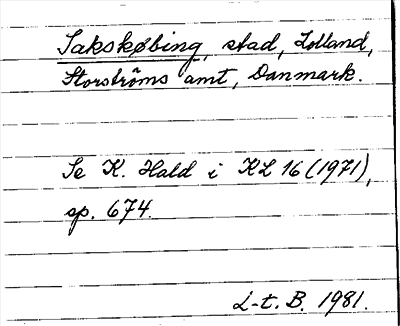 Sakskøbing, stad, Lolland,
Storströms amt, Danmark.
Se K. Hald i KL 16 (1971),
sp. 674.
L-t. B. 1981.